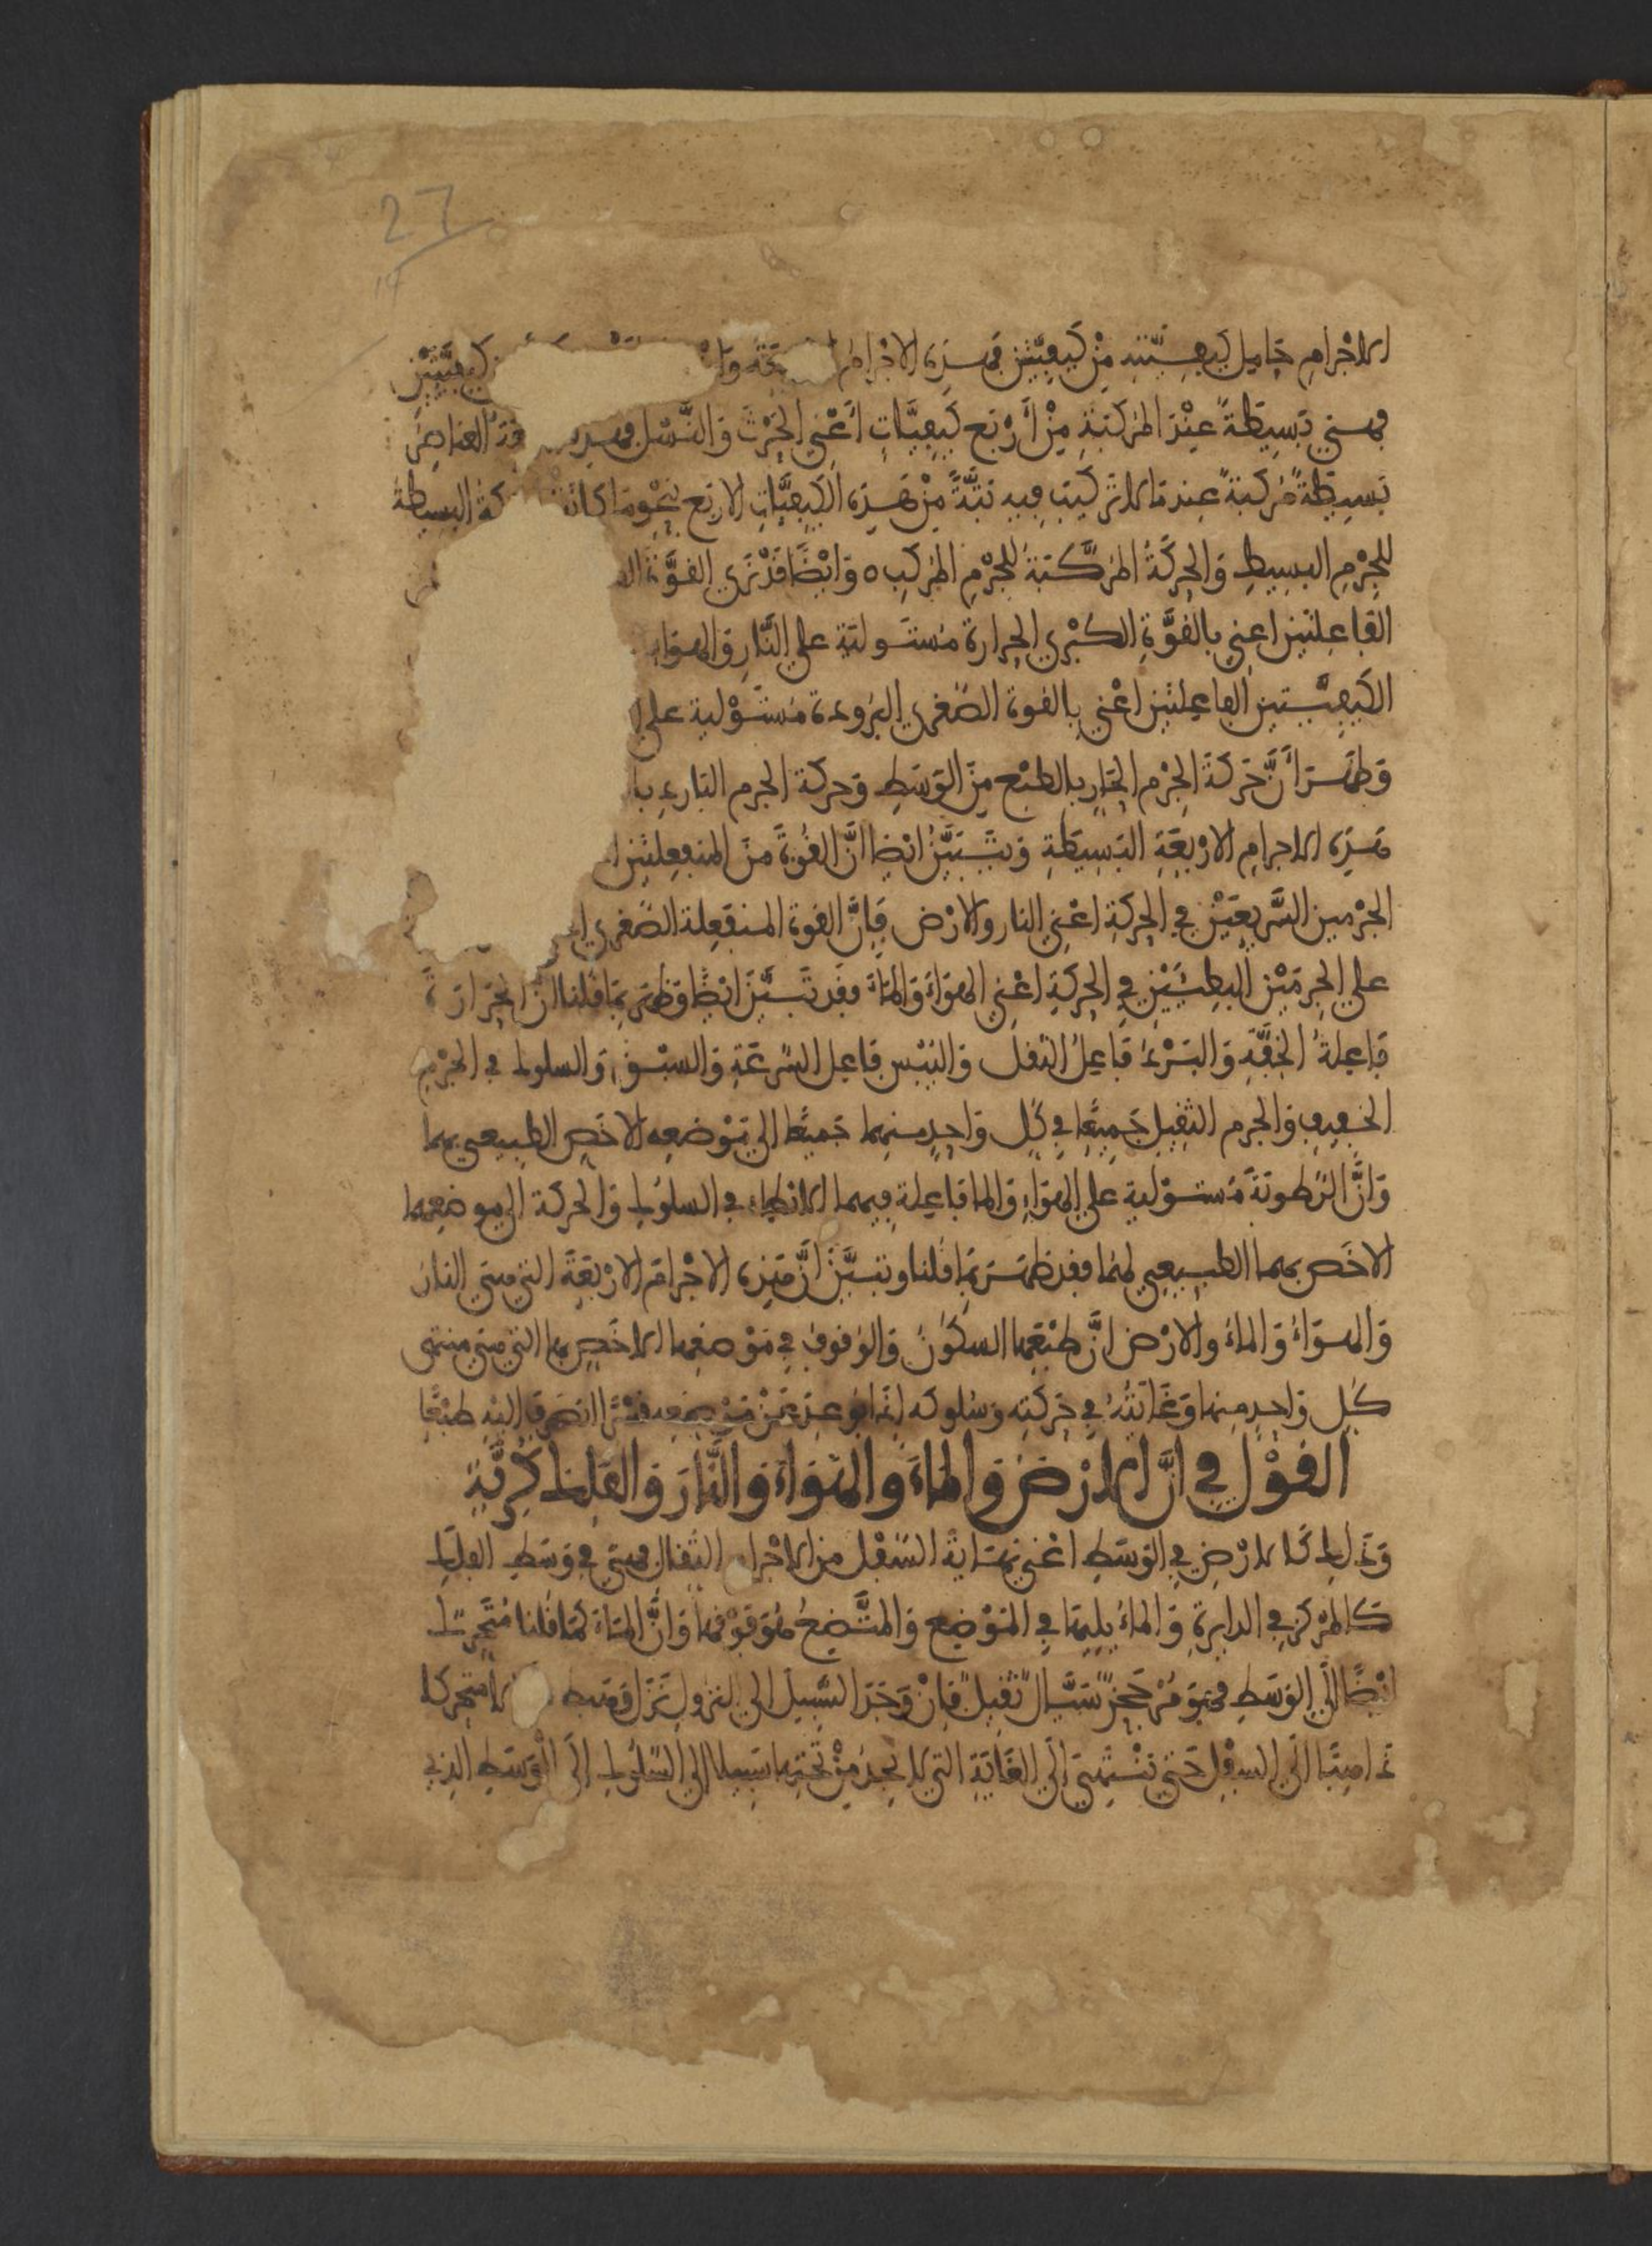 27
14
الاجرام حامل كيفيته من كيفيتين فهذه الاجرام كيفيتين
فهي بسيطة عند المركبة من أربع كيفيات أعني الحرث والنسل العناصر
بسيطة مركبة عندما لا تركيب فيه بتة من هذه الكيفيات الاربع البسيطة
للجرم البسيط والحركة المركبة للجرم المركب ه وايضا قد نرى القوة
الفاعلتين اعني بالقوة الكبرى الحرارة مستولية على النار والهواء
الكيفيتين الفاعلتين اعني بالقوة الصغرى البرودة مستولية على
وظهر أن حركة الجرم الحار بالطبع من الوسط وحركة الجرم البارد با
هذه الاجرام الاربعة البسيطة وتبين ايضا ان القوة من المنفعلتين
الجرمين السريعين في الحركة اعني النار والارض فإن القوة المنفعلة الصغرى
على الجرمين البطيئين في الحركة اعني الهواء والماء فقد تبين ايضا وظهر بما قلنا ان الحرارة
فاعلة الخفة والبرد فاعل الثقل واليبس فاعل السرعة والسبق والسلوك في الجرم
الخفيف والجرم الثقيل جميعا في كل واحد منهما جميعا الى موضعه الاخص الطبيعي بهما
وان الرطوبة مستولية على الهواء والما فاعلة فيهما الابطاء في السلوك والحركة الى موضعهما
الاخص بهما الطبيعي لهما فقد ظهر بما قلنا وتبين ان هذه الاجرام الاربعة التي هي النار
والهواء والماء والارض ان طبعها السكون والوقوف في موضعها الاخص بها التي هي منتهى
كل واحد منها وغايته في حركته وسلوكه اليه طبعا
القول في ان الارض والماء والهواء والنار والفلك كرية
وذلك الارض في الوسط اعني نهاية السفل من الاجرام الثقال فهي في وسط الفلك
كالمركز في الدايرة والماء يليها في الموضع والمتضح هو فوقها وان الماء كما قلنا متحرك
ايضا الى الوسط فهو سيال ثقيل فان وجد السبيل الى النزول نزل متحركا
ذاهبا الى السفل حتى ينتهي الى الغاية التي لا يجد من تحتها سبيلا الى السلوك الى الوسط الذي